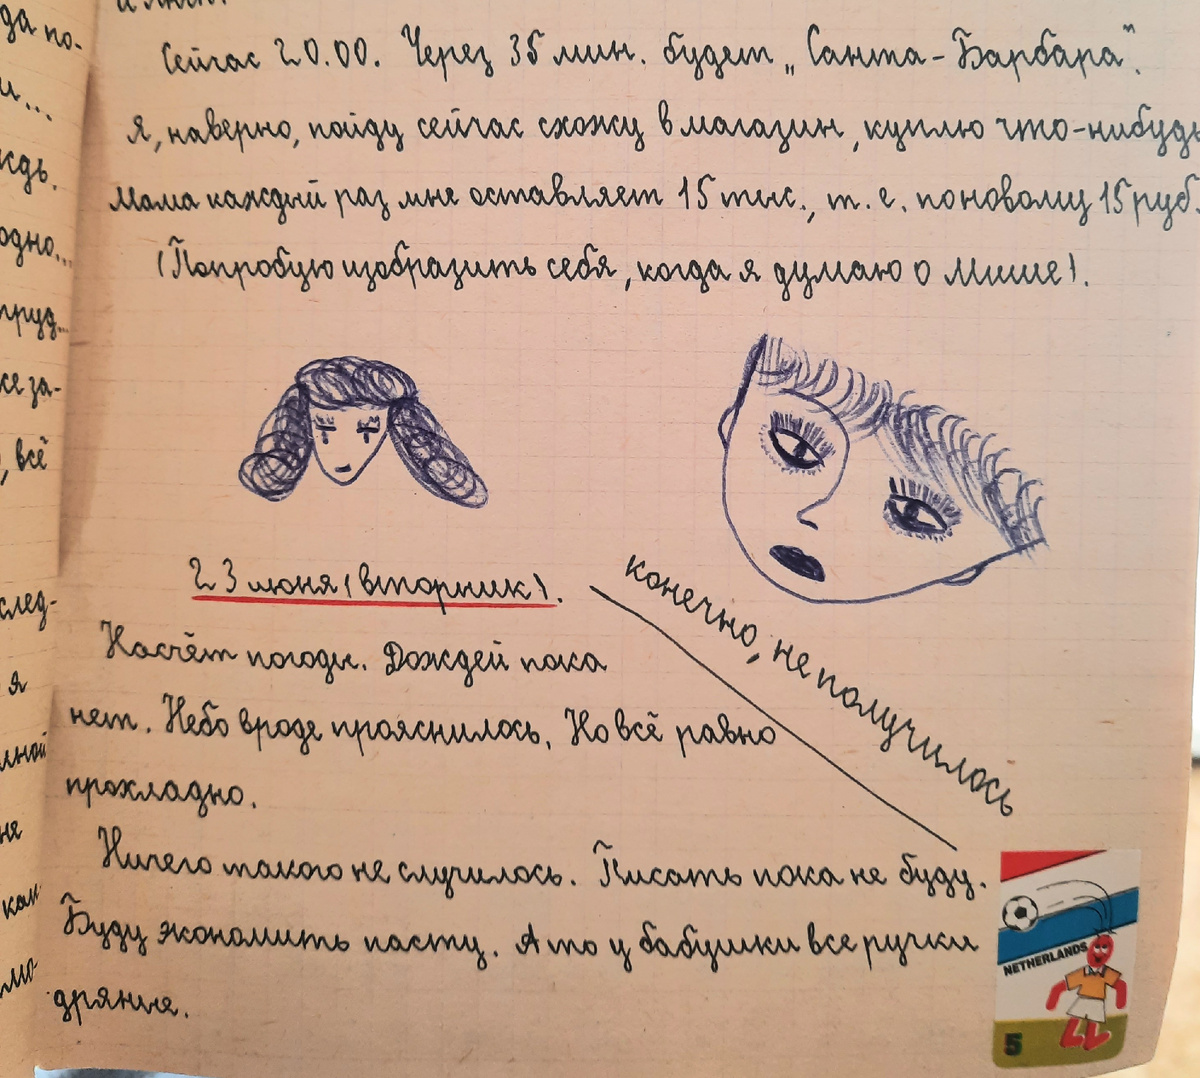 Сейчас 20.00. Через 35 мин. будет „Санта-Барбара".
Я, наверно, пойду сейчас схожу в магазин, куплю что-нибудь
Мама каждый раз мне оставляет 15 тыс., т.е. по новому 15 руб.
(Попробую изобразить себя, когда я думаю о Мише).
23 июня (вторник).
конечно, не получилось
Насчёт погоды. Дождей пока
нет. Небо вроде прояснилось. Но всё равно
прохладно.
Ничего такого не случилось. Писать пока не буду.
Буду экономить пасту. А то у бабушки все ручки
дряные.
NETHERLANDS
5
да по-
и...
ждь.
одно...
пруд...
се за-
, всё
след-
я
лной
не
как